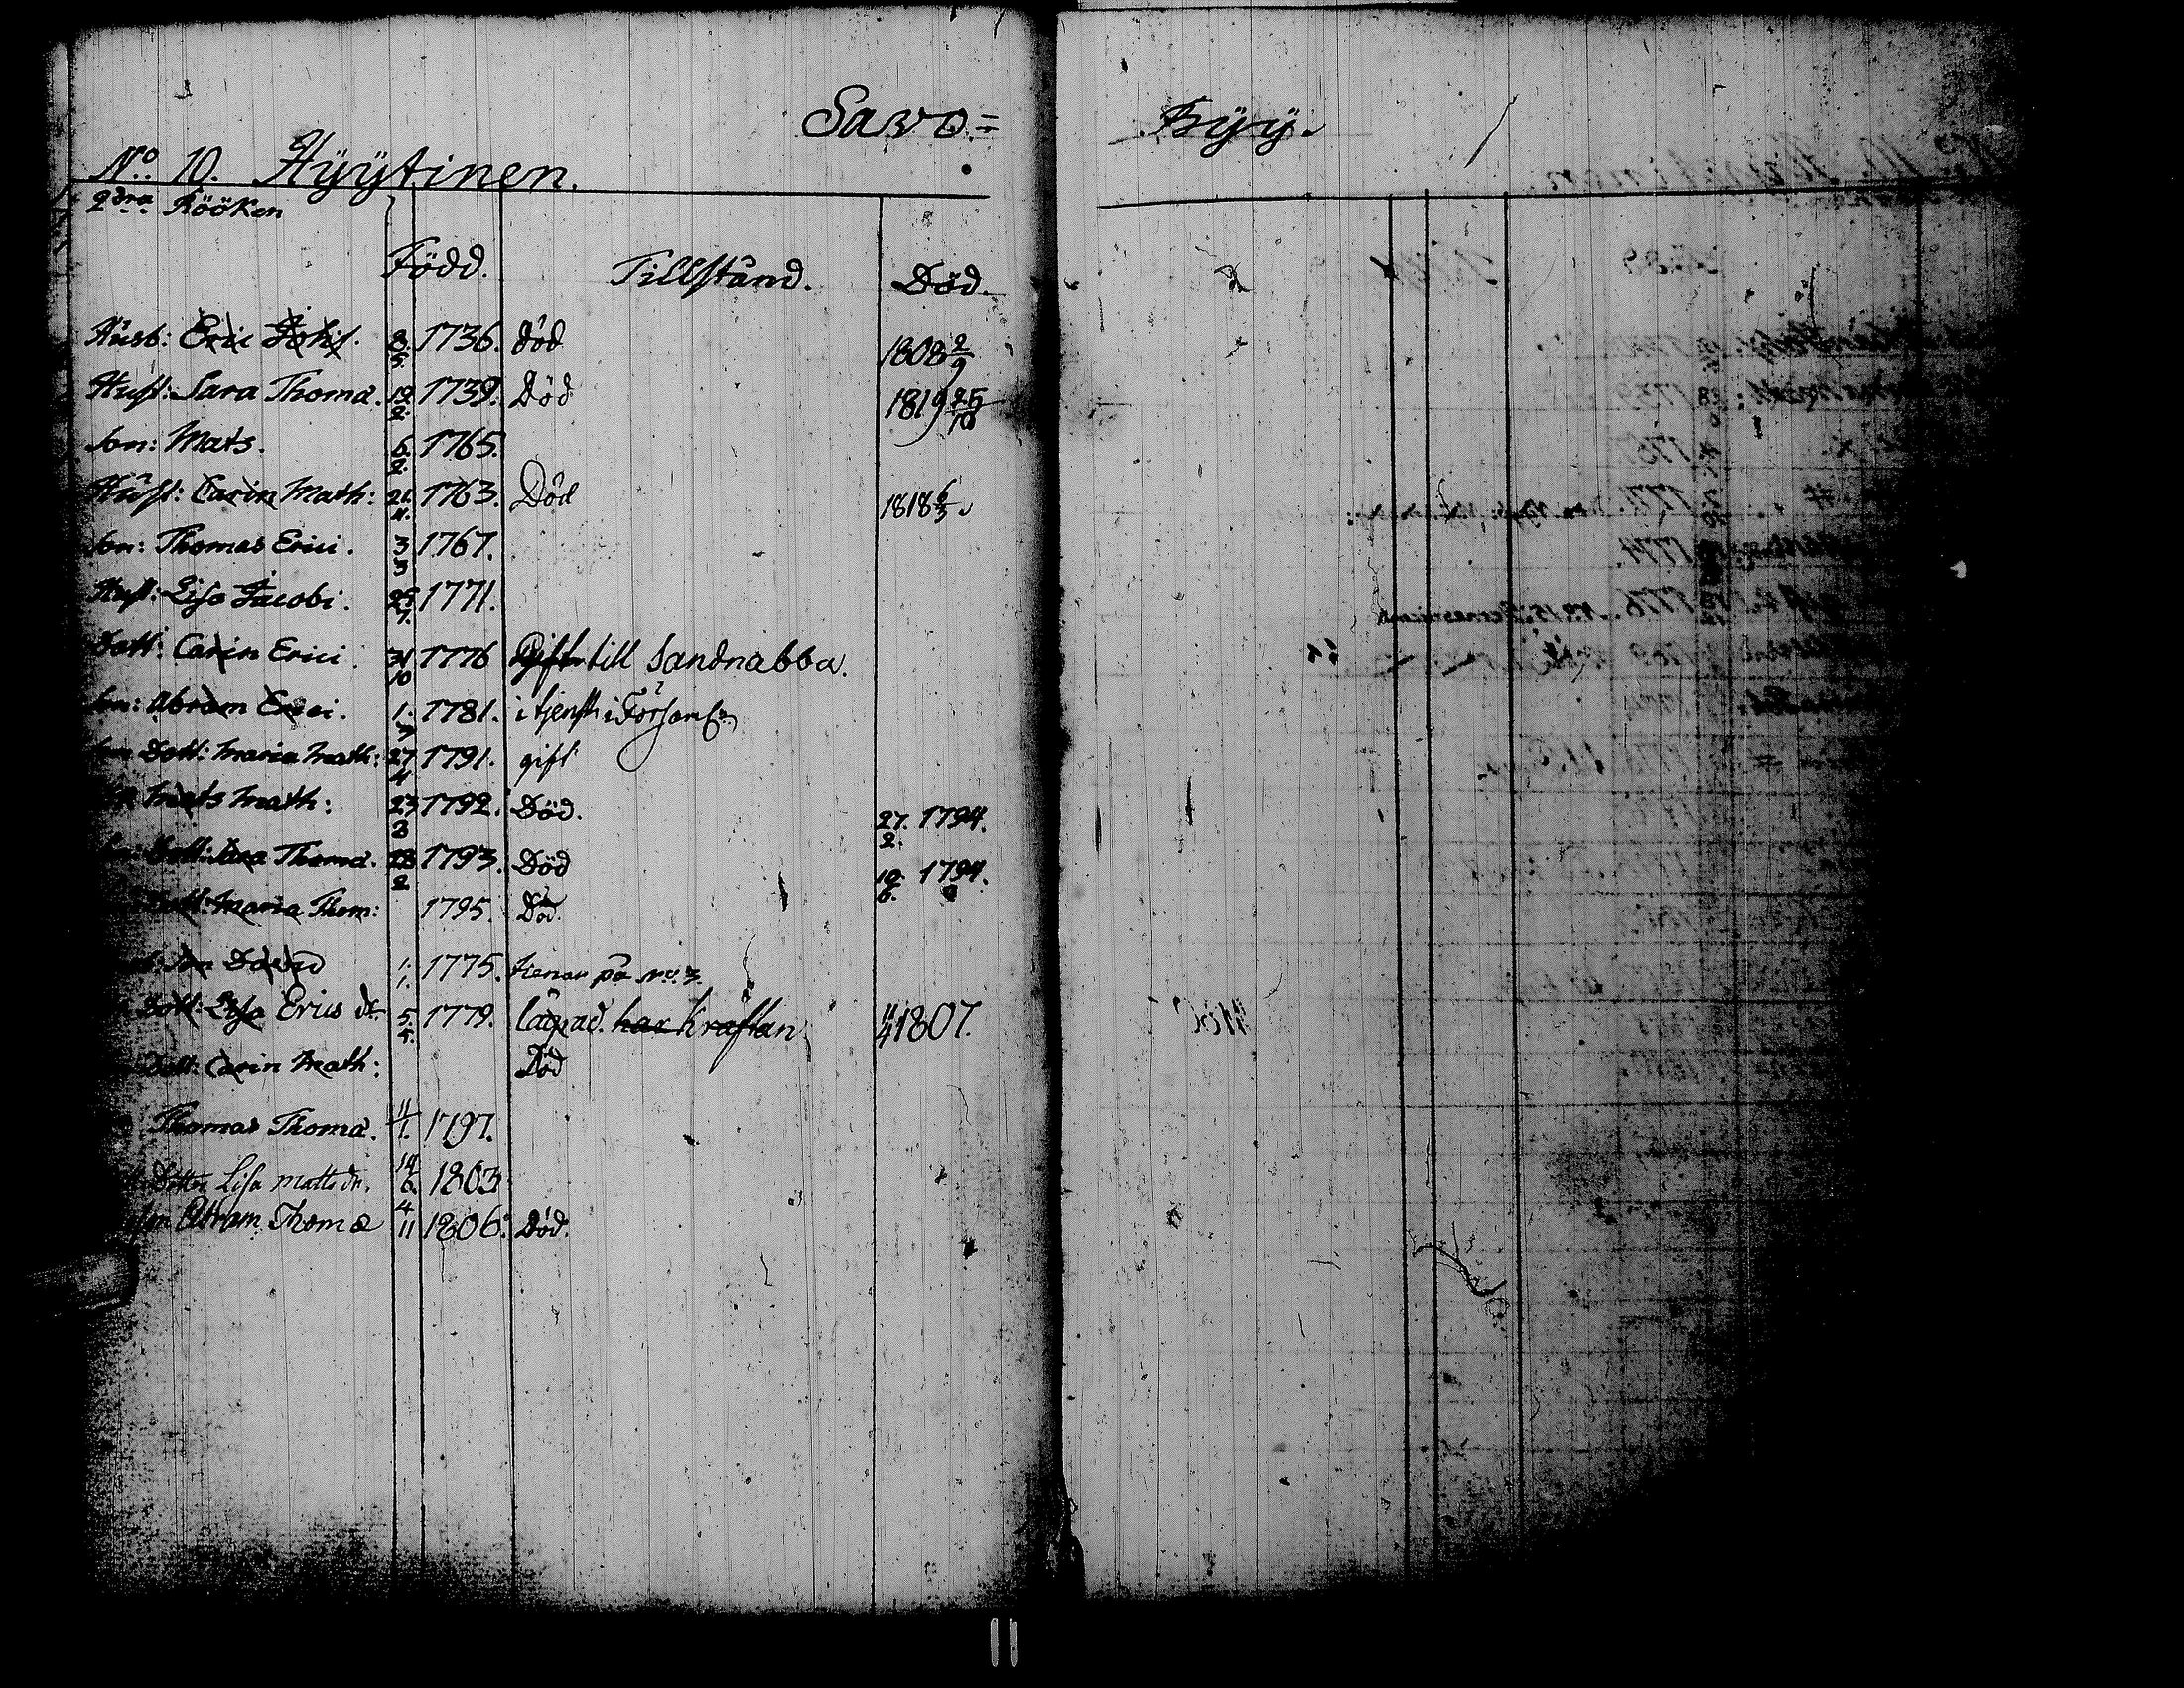 Savo= Kyy.
No: 10. Hÿÿtinen.
2dra Rööken
Född. Tillstånd. Död.
Husb: Eric Johis. 8/5. 1736. Död 1808 2/9
Hust: Sara Thomæ. 19/2. 1739. Död 1819 25/10
Son: Mats. 6/2. 1765.
Hust: Carin Math: 21/11. 1763. Död 1818 6/3.
Son: Thomas Erici. 3/3 1767.
Hust: Lisa Jacobi. 25/7. 1771.
Dott: Carin Erici 31/10 1776 Gift till Sandnabba.
Son: Abram Erici. 1/7. 1781. i tjenst i
Dott: Maria Math: 27/4 1791. gift
Mats Math: 23/3 1792. Död. 27/2. 1794.
Dott: Thomæ. 28/2 1793. Död 19/6. 1794.
Dott: Maria Thom: 1795. Död.
Son David 1/1. 1775. tienar på No: 3.
Dott: Lisa Erics dr. 5/5. 1779. har Kräftan 1807.
Dott: Carin Math: Död
Thomas Thomæ. 11/1. 1797.
Dotter Lisa Matts dr. 14/6. 1803
Son Abram Thomæ 4/11 1806. Död.
11